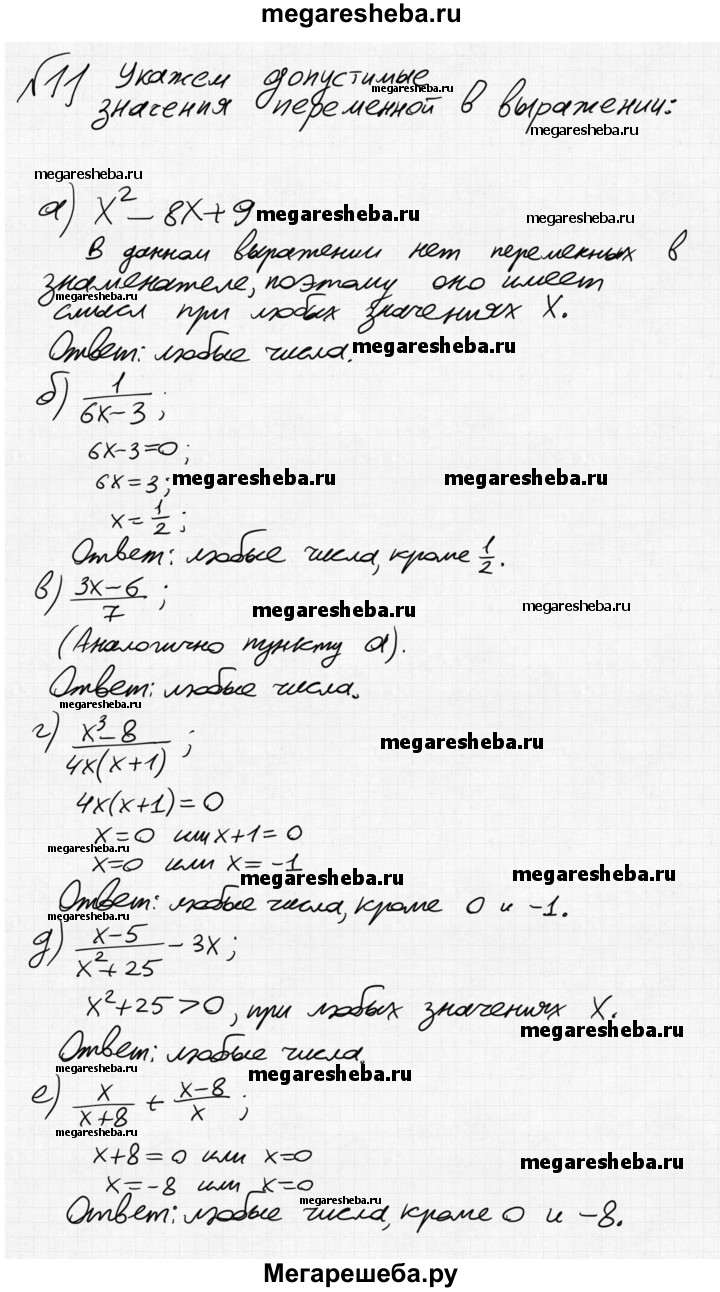 megaresheba.ru
№11 Укажем допустимые
megaresheba.ru
значения переменной в выражении:
megaresheba.ru
megaresheba.ru
а) x² – 8x + 9 megaresheba.ru megaresheba.ru
В данном выражении нет переменных в
знаменателе, поэтому оно имеет
megaresheba.ru
смысл при любых значениях X.
Ответ: любые числа. megaresheba.ru
б) 1/(6x–3);
6x–3=0;
6x=3; megaresheba.ru megaresheba.ru
x=1/2;
Ответ: любые числа, кроме 1/2.
в) (3x–6)/7; megaresheba.ru megaresheba.ru
(Аналогично пункту а).
Ответ: любые числа.
megaresheba.ru
г) (x³–8)/(4x(x+1)); megaresheba.ru
4x(x+1)=0
x=0 или x+1=0
megaresheba.ru
x=0 или x=-1
megaresheba.ru megaresheba.ru
Ответ: любые числа, кроме 0 и -1.
megaresheba.ru
д) (x–5)/(x²+25) – 3x;
x²+25>0, при любых значениях X.
megaresheba.ru
Ответ: любые числа.
megaresheba.ru
е) x/(x+8) + (x–8)/x;
megaresheba.ru
x+8=0 или x=0
megaresheba.ru
x=-8 или x=0
megaresheba.ru
Ответ: любые числа, кроме 0 и -8.
Мегарешеба.ру